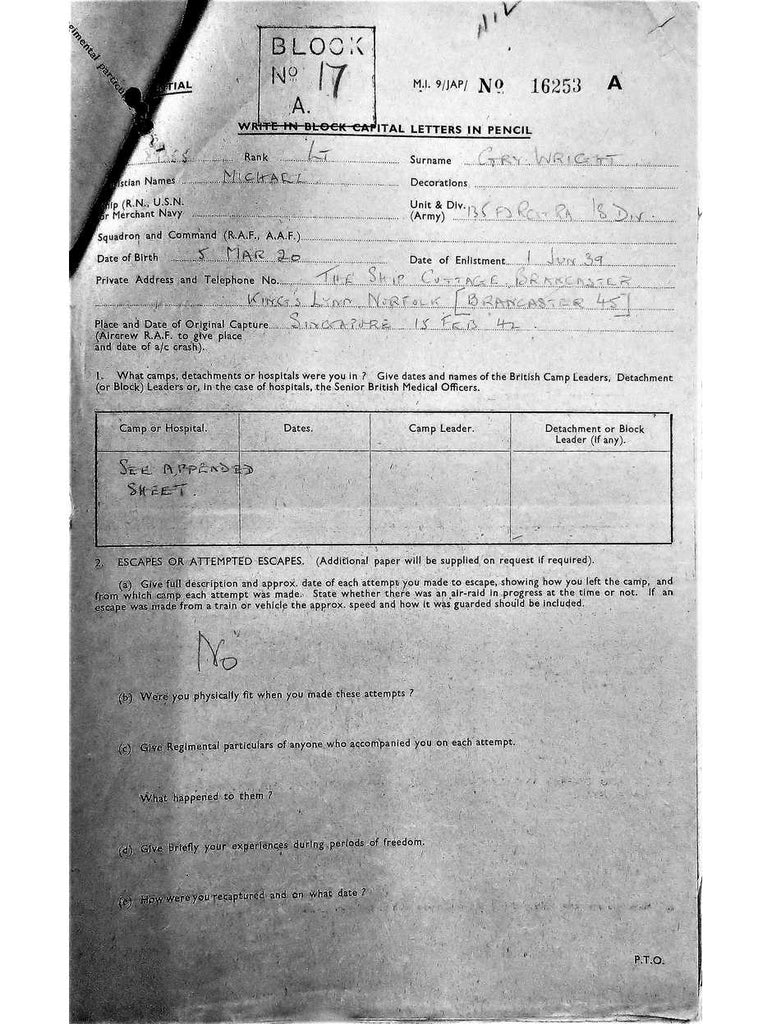 NIL
BLOCK
No 17
A.
M.I. 9/JAP/ No 16253 A
TIAL
imental particul
WRITE IN BLOCK CAPITAL LETTERS IN PENCIL
Rank Lt Surname GRYWRIGHT
stian Names MICHAEL Decorations
hip (R.N., U.S.N. Unit & Div.
r Merchant Navy (Army) 135 FD REGT RA 18 DIV.
Squadron and Command (R.A.F., A.A.F.)
Date of Birth 5 MAR 20 Date of Enlistment 1 JUN 39
Private Address and Telephone No. THE SHIP COTTAGE BRANCASTER
KING'S LYNN NORFOLK [BRANCASTER 45]
Place and Date of Original Capture SINGAPORE 15 FEB 42.
(Aircrew R.A.F. to give place
and date of a/c crash).
1. What camps, detachments or hospitals were you in ? Give dates and names of the British Camp Leaders, Detachment
(or Block) Leaders or, in the case of hospitals, the Senior British Medical Officers.
Camp or Hospital. Dates. Camp Leader. Detachment or Block
Leader (if any).
SEE APPENDED
SHEET.
2. ESCAPES OR ATTEMPTED ESCAPES. (Additional paper will be supplied on request if required).
(a) Give full description and approx. date of each attempt you made to escape, showing how you left the camp, and
from which camp each attempt was made. State whether there was an air-raid in progress at the time or not. If an
escape was made from a train or vehicle the approx. speed and how it was guarded should be included.
No
(b) Were you physically fit when you made these attempts ?
(c) Give Regimental particulars of anyone who accompanied you on each attempt.
What happened to them ?
(d) Give Briefly your experiences during periods of freedom.
(e) How were you recaptured and on what date ?
P.T.O.